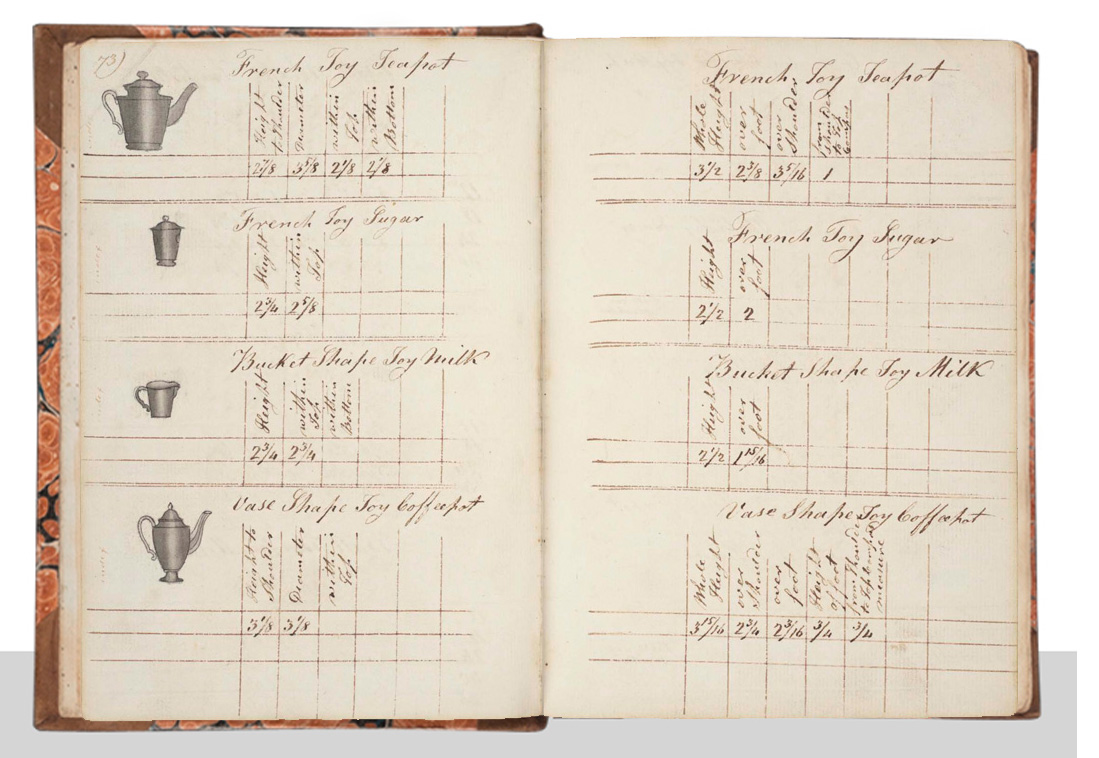 73)
French Toy Teapot
Height to Shoulder
Diameter
within Top
within Bottom
2 7/8 3 5/8 2 1/8 2 1/8
French Toy Sugar
Height
within Top
2 3/4 2 5/8
Bucket Shape Toy Milk
Height
within Top
within Bottom
2 3/4 2 3/4
Vase Shape Toy Coffeepot
Height to Shoulder
Diameter
within Top
3 1/8 3 1/8
French Toy Teapot
Whole Height
over foot
over Shoulder
from Shoulder to Top
3 1/2 2 3/8 3 5/16 1
French Toy Sugar
Height
over foot
2 1/2 2
Bucket Shape Toy Milk
Height
over foot
2 1/2 1 15/16
Vase Shape Toy Coffeepot
Whole Height
over Shoulder
over foot
Height of foot
from Shoulder to Top measure
3 15/16 2 3/4 2 3/16 3/4 3/4